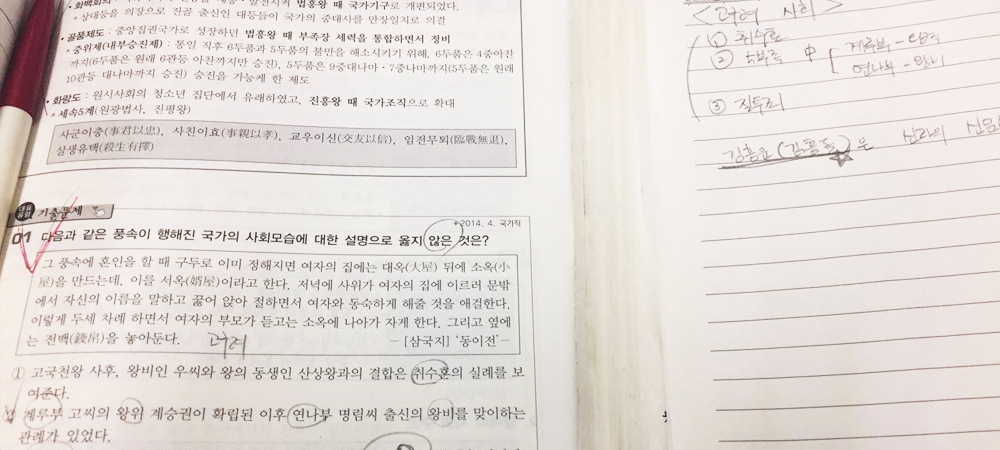 때 국가기구로 개편되었다.
* 상대등을 의장으로 진골 출신인 대등들이 국가의 중대사를 만장일치로 의결
• 골품제도 : 중앙집권국가로 성장하던 법흥왕 때 부족장 세력을 통합하면서 정비
* 중위제(내부승진제) : 통일 직후 6두품과 5두품의 불만을 해소시키기 위해, 6두품은 4중아찬
까지(6두품은 원래 6관등 아찬까지만 승진), 5두품은 9중대나마·7중나마까지(5두품은 원래
10관등 대나마까지 승진) 승진을 가능케 한 제도
• 화랑도 : 원시사회의 청소년 집단에서 유래하였고, 진흥왕 때 국가조직으로 확대
* 세속5계(원광법사, 진평왕)
사군이충(事君以忠), 사친이효(事親以孝), 교우이신(交友以信), 임전무퇴(臨戰無退),
살생유택(殺生有擇)
대표유형 기출문제
* 2014. 4. 국가직
01 다음과 같은 풍속이 행해진 국가의 사회모습에 대한 설명으로 옳지 않은 것은?
그 풍속에 혼인을 할 때 구두로 이미 정해지면 여자의 집에는 대옥(大屋) 뒤에 소옥(小
屋)을 만드는데, 이를 서옥(婿屋)이라고 한다. 저녁에 사위가 여자의 집에 이르러 문밖
에서 자신의 이름을 말하고 꿇어 앉아 절하면서 여자와 동숙하게 해줄 것을 애걸한다.
이렇게 두세 차례 하면서 여자의 부모가 듣고는 소옥에 나아가 자게 한다. 그리고 옆에
는 전백(錢帛)을 놓아둔다. 고구려 - [삼국지] ‘동이전’ -
① 고국천왕 사후, 왕비인 우씨와 왕의 동생인 산상왕과의 결합은 취수혼의 실례를 보
여준다.
② 계루부 고씨의 왕위 계승권이 확립된 이후 연나부 명림씨 출신의 왕비를 맞이하는
관례가 있었다.
사회>
①
② 5부족 中 계루부 - 왕족
연나부 - 왕비
③
은 신라의